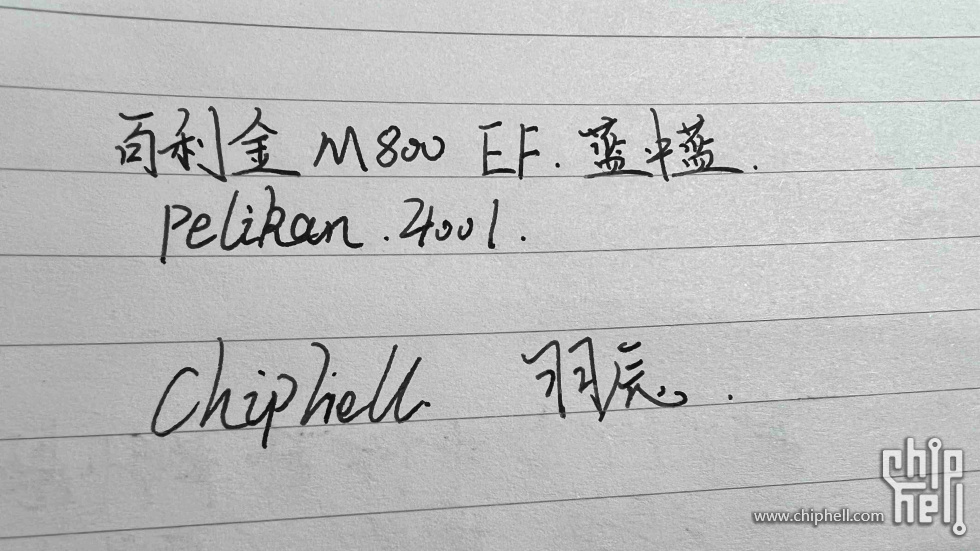 百利金 M800 EF. 蓝中蓝.
Pelikan. 4001.
Chiphell. 羽辰。.
chip hell
www.chiphell.com